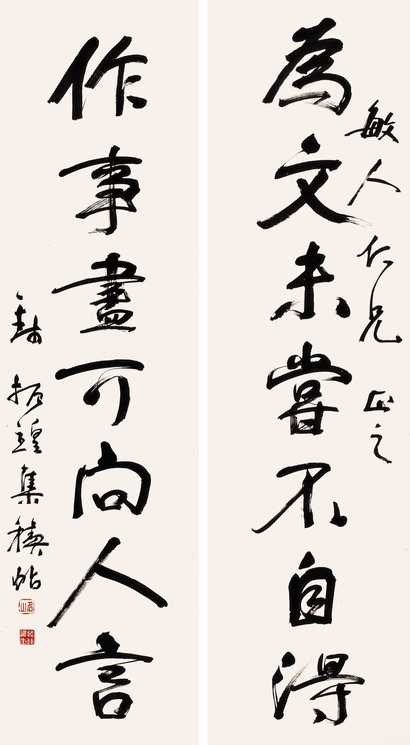 為文未嘗不自得
敏人仁兄正之
作事盡可向人言
振煌集楔帖